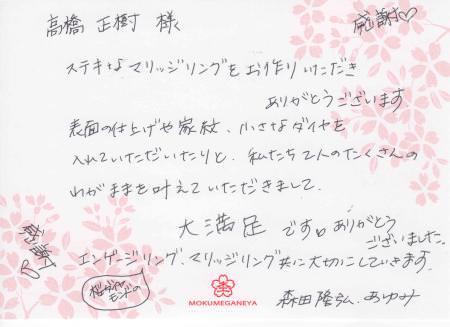 高橋 正樹 様
感謝♡
ステキなマリッジリングをお作りいただき
ありがとうございます
表面の仕上げや家紋、小さなダイヤを
入れていただいたりと、私たち2人のたくさんの
わがままを叶えていただきまして、
大満足です。ありがとう
ございました。
感謝!
エンゲージリング、マリッジリング共に大切にしていきます。
桜ダイヤモンドの
MOKUMEGANEYA
森田 隆弘、あゆみ